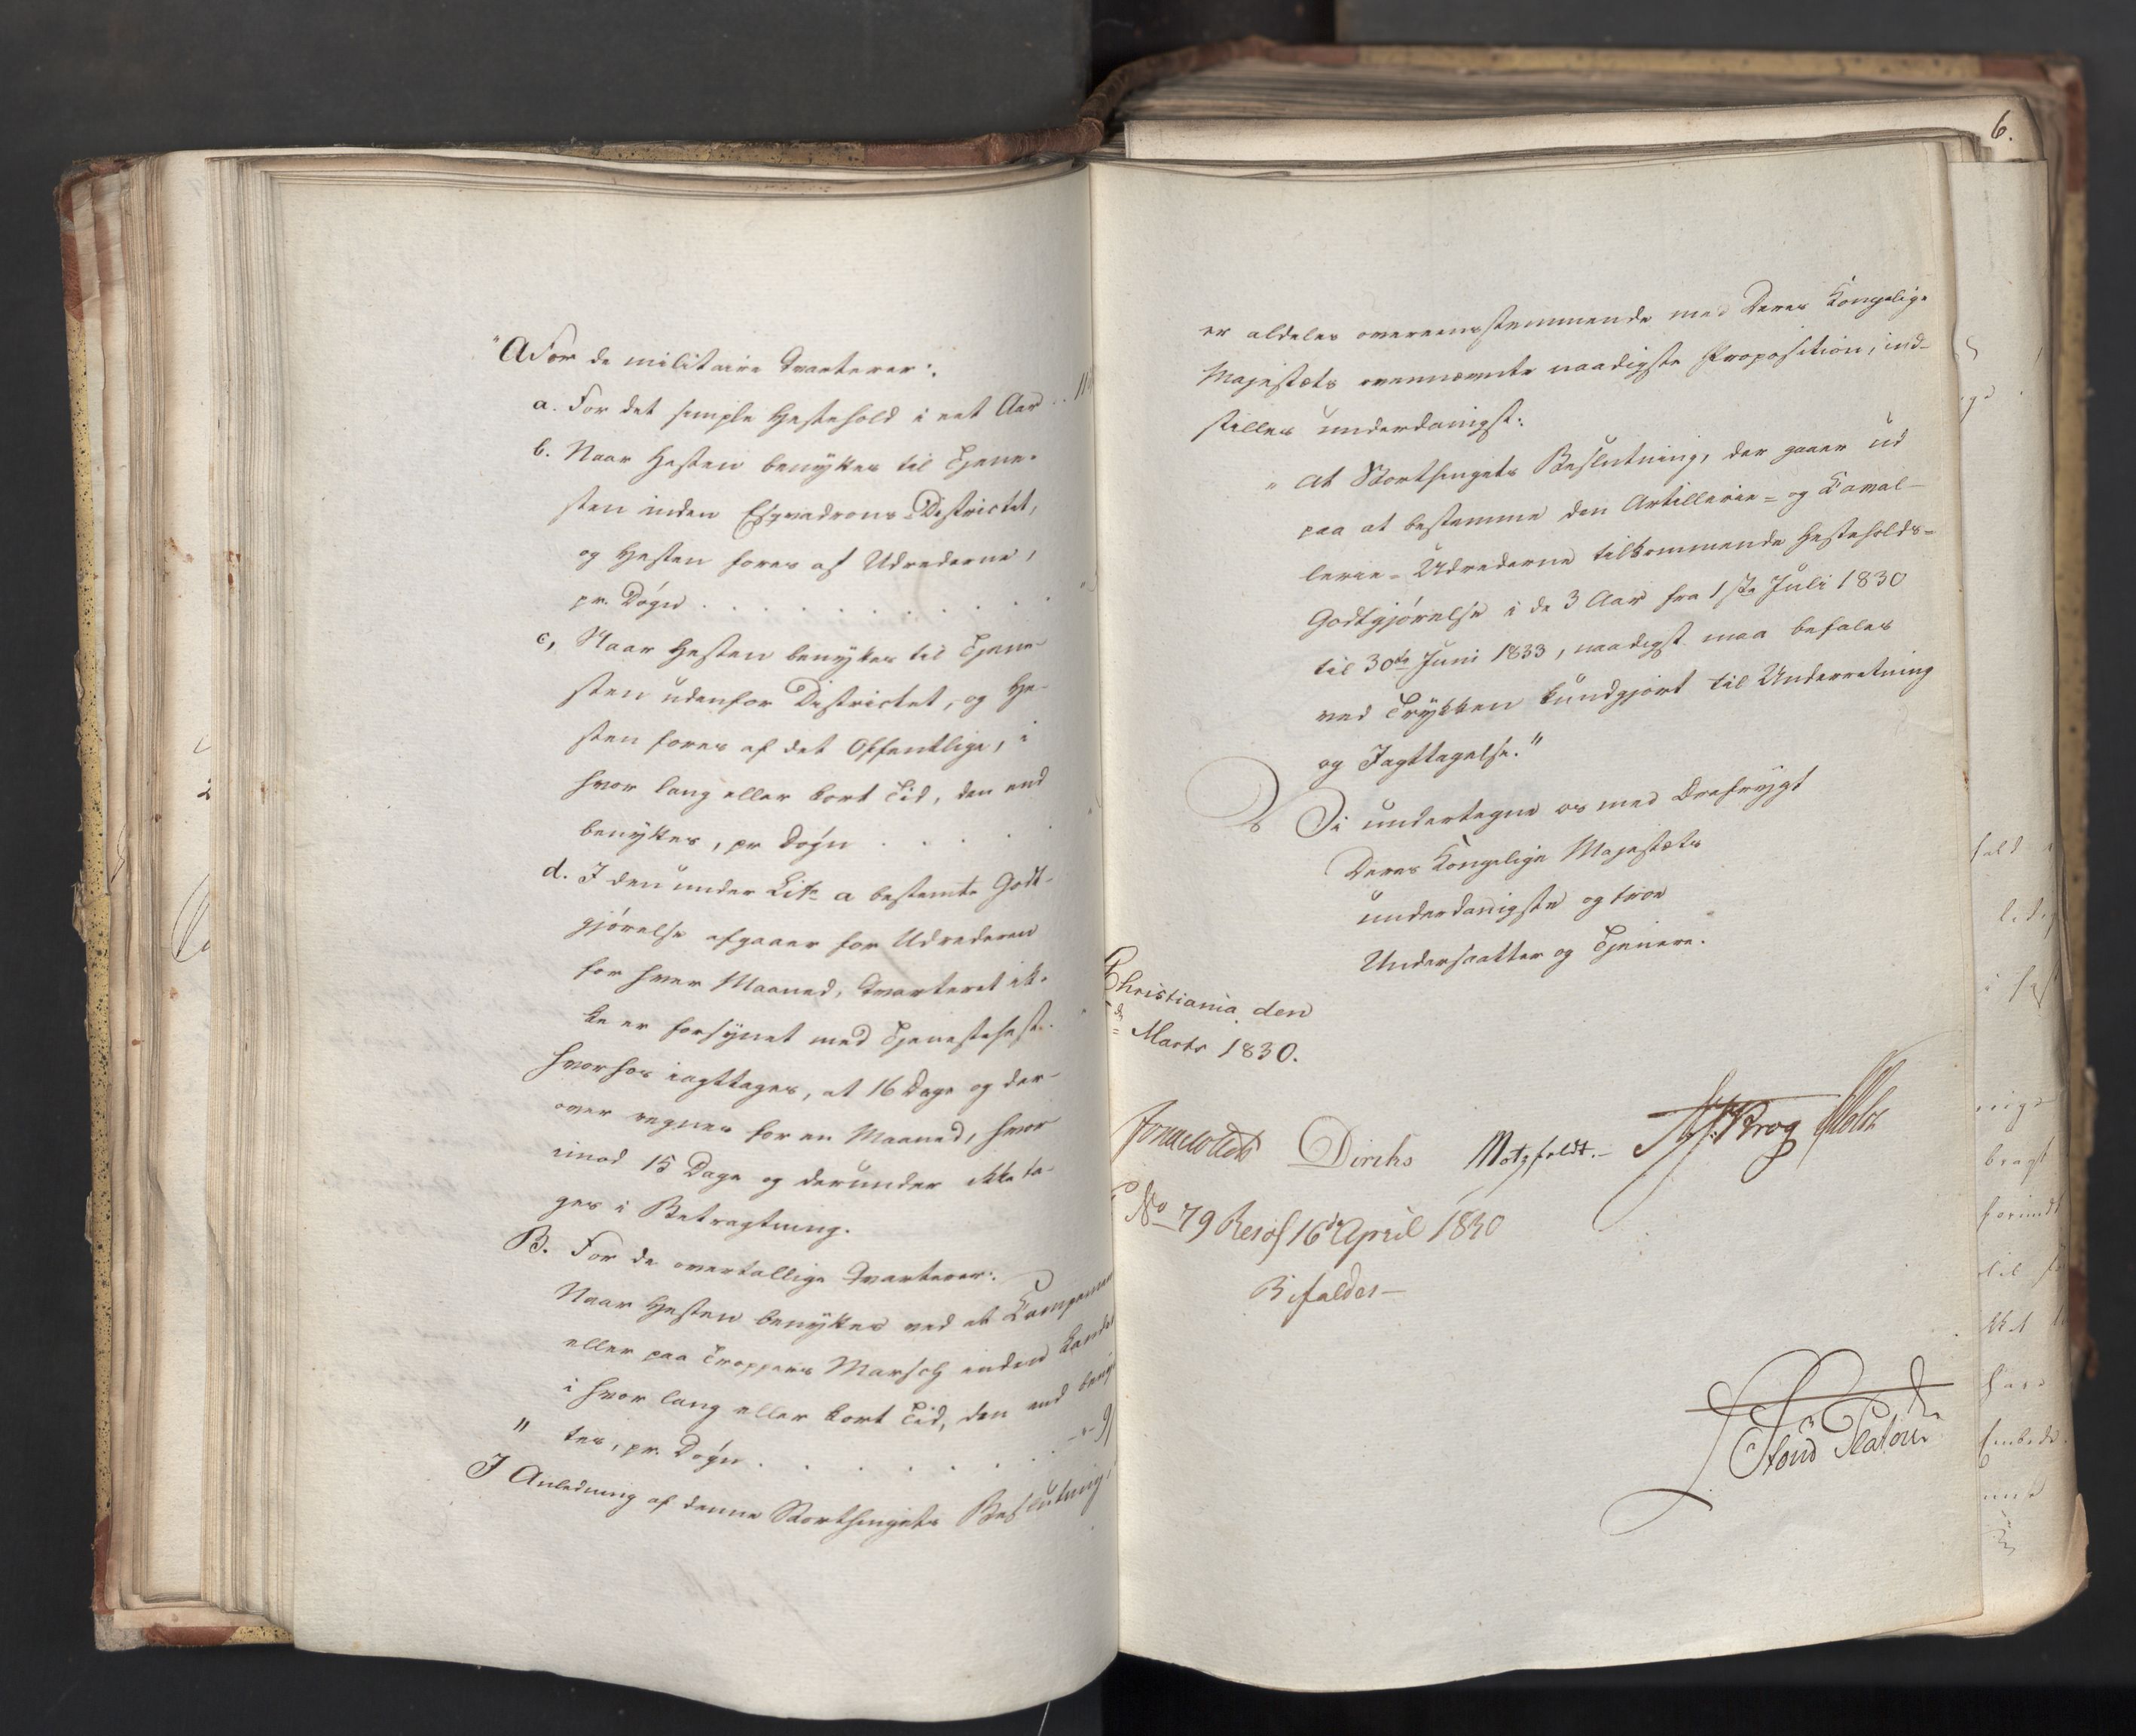 "A For de militaire Qvarterer:
a. For det simple Hestehold i eet Aar . .
b. Naar Hesten benyttes til Tjene-
sten inden Esqvadrons-Districtet,
og Hesten fores af Udrederne,
pr. Døgn . . . . . . . . . .
c, Naar Hesten benyttes til Tjene-
sten udenfor Districtet, og He-
sten fores af det Offentlige, i
hvor lang eller kort Tid, den end
benyttes, pr Døgn . . . .
d. I den under Litr a bestemte Godt-
gjørelse afgaaer for Udrederen
for hver Maaned, Qvarteret ik-
ke er forsynet med Tjenestehest.
hvorhos iagttages, at 16 Dage og der-
over regnes for en Maaned, hvor
imod 15 Dage og derunder ikke ta-
ges i Betragtning.
B. For de overtallige Qvarterer:
Naar Hesten benyttes ved et
eller paa Troppers March inden
i hvor lang eller kort Tid, den end beny
" tes, pr. Døgn . . . . . . .
I Anledning af denne Storthingets Beslutning,
6.
er aldeles overeensstemmende med Deres Kongelige
Majestæts ovennævnte naadigste Proposition, ind-
stilles underdanigst:
" At Storthingets Beslutning, der gaaer ud
paa at bestemme den Artillerie- og Kaval-
lerie-Udrederne tilkommende Hesteholds-
Godtgjørelse i de 3 Aar fra 1ste Juli 1830
til 30te Juni 1833, naadigst maa befales
ved Trykken kundgjort til Underretning
og Iagttagelse."
Vi undertegne os med Ærefrygt
Deres Kongelige Majestæts
underdanigste og troe
Undersaatter og Tjenere.
Christiania den
Marts 1830.
Diriks Motzfeldt.- Krog Holst
No 79 Resol 16de April 1830
Bifaldes-